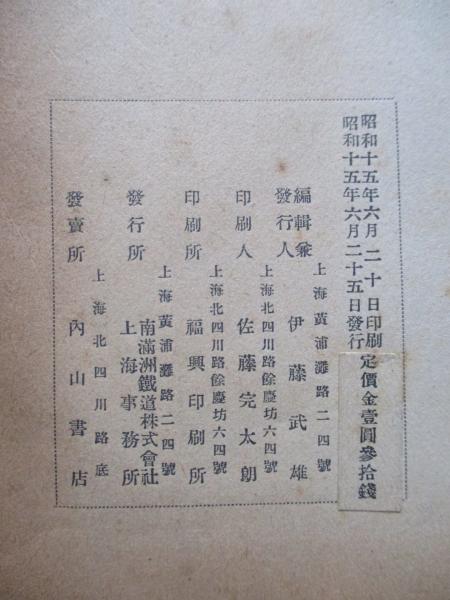 昭和十五年六月二十日印刷
昭和十五年六月二十五日發行
定價金壹圓參拾錢
編輯兼
發行人
上海黃浦灘路二四號
伊藤武雄
印刷人
上海北四川路餘慶坊六四號
佐藤完太朗
印刷所
上海北四川路餘慶坊六四號
福興印刷所
發行所
上海黃浦灘路二四號
南滿洲鐵道株式會社
上海事務所
發賣所
上海北四川路底
內山書店